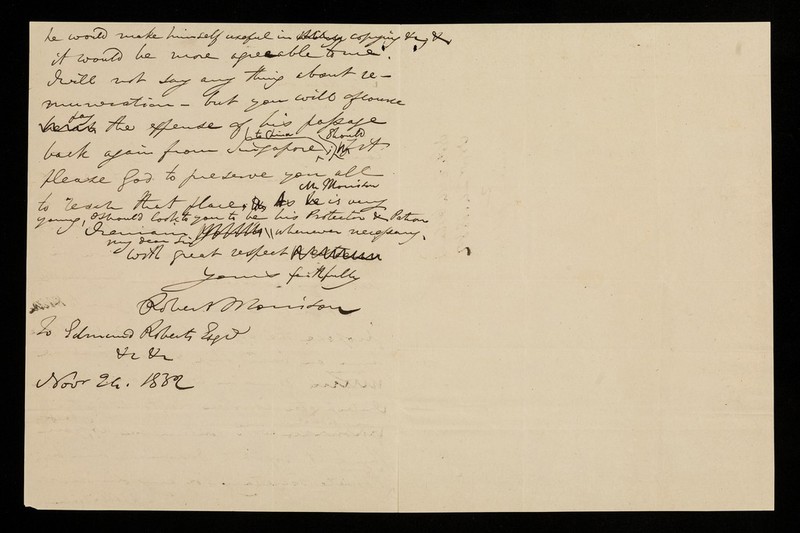 he would make himself useful in copying &c, &c
it would be more agreeable to me.
I will not say any thing about re-
muneration - but you will of course
pay
the expense of his passage
to China should
back again from Singapore; it
please God to preserve you all
Mr Morrison
to reach that place, As he is very
young, I should look to you to be his Protector & Patron
I remain whenever necessary.
my dear Sir
with great respect
Yours faithfully
Robert Morrison
To Edmund Roberts Esqr
&c &c
Novr 24. 1832